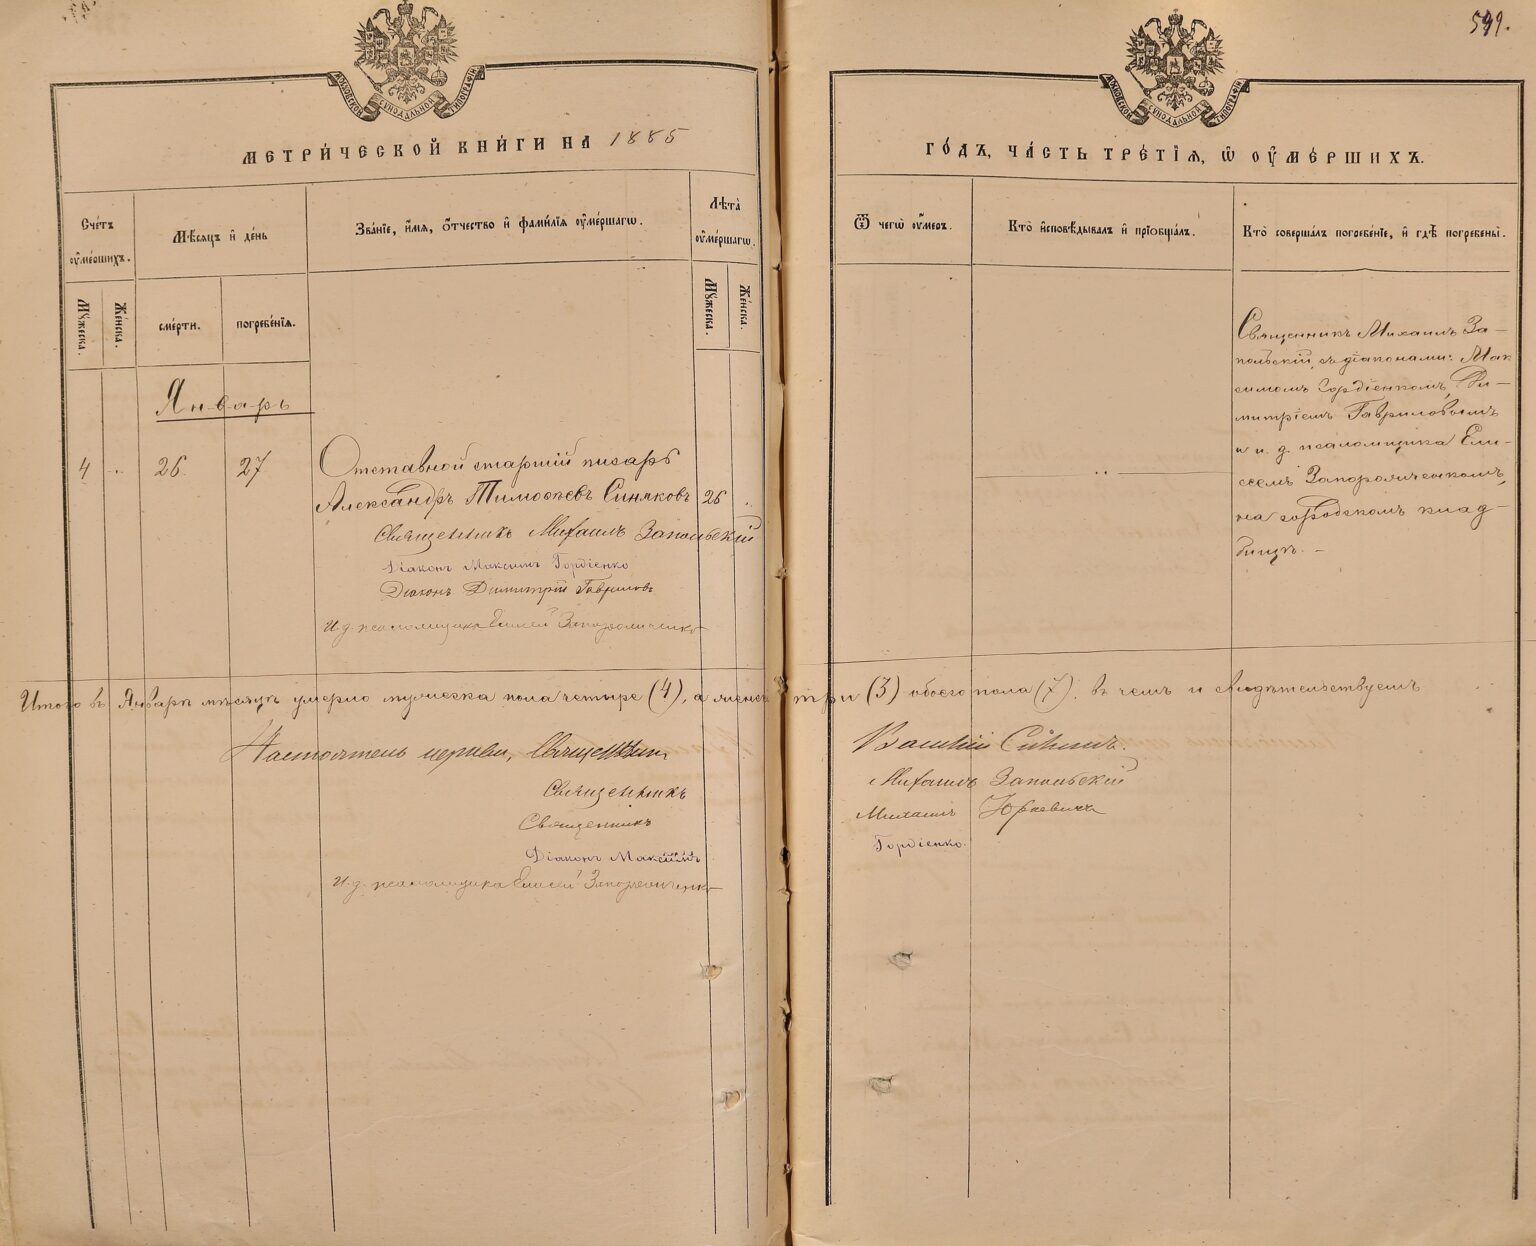 599.
МОСКОВСКОЙ СѴНОДАЛЬНОЙ ТИПОГРАФІИ
МОСКОВСКОЙ СѴНОДАЛЬНОЙ ТИПОГРАФІИ
МЕТРИ́ЧЕСКОЙ КНИ́ГИ НА 1885
ГО́ДЪ, ЧА́СТЬ ТРЕ́ТІѦ, Ѽ ОУ҆МЕ́РШИХЪ.
Сче́тъ
оу҆ме́ршихъ.
Мѣ́сѧцъ и҆ де́нь
Зва́нїе, и҆́мѧ, ѻ҆́тчество и҆ фами́лїѧ оу҆ме́ршагѡ.
Лѣ́та
оу҆ме́ршагѡ.
Ѿ чегѡ̀ оу҆́меръ.
Кто̀ и҆сповѣ́дывалъ и҆ прїѡбща́лъ.
Кто̀ соверша́лъ погребе́нїе, и҆ гдѣ̀ погребены̀.
Мꙋ́жеска.
Же́нска.
сме́рти.
погребе́нїѧ.
Мꙋ́жеска.
Же́нска.
Январь
4 " 26. 27 Отставной старшій писарь
Александръ Тимоѳеевъ Синяковъ 26 "
Священникъ Михаилъ Запольскій
Діаконъ Максимъ Гордіенко
Діаконъ Димитрій Гавриловъ
И. д. псаломщика Елисей Запорожченко
Священникъ Михаилъ За-
польскій, съ діаконами: Мак
симомъ Гордіенкомъ, Ди-
митріемъ Гавриловымъ
и и. д. псаломщика Ели-
сеемъ Запорожченкомъ,
на городскомъ клад-
бищѣ. –
Итого въ Январѣ мѣсяцѣ умерло мужеска пола четыре (4), а женска три (3) обоего пола (7). въ чемъ и свидѣтельствуемъ
Настоятель церкви, Священникъ Василій
Священникъ Михаилъ Запольскій
Священникъ Михаилъ Юркевичъ
Діаконъ Максимъ Гордіенко.
И. д. псаломщика Елисей Запорожченко